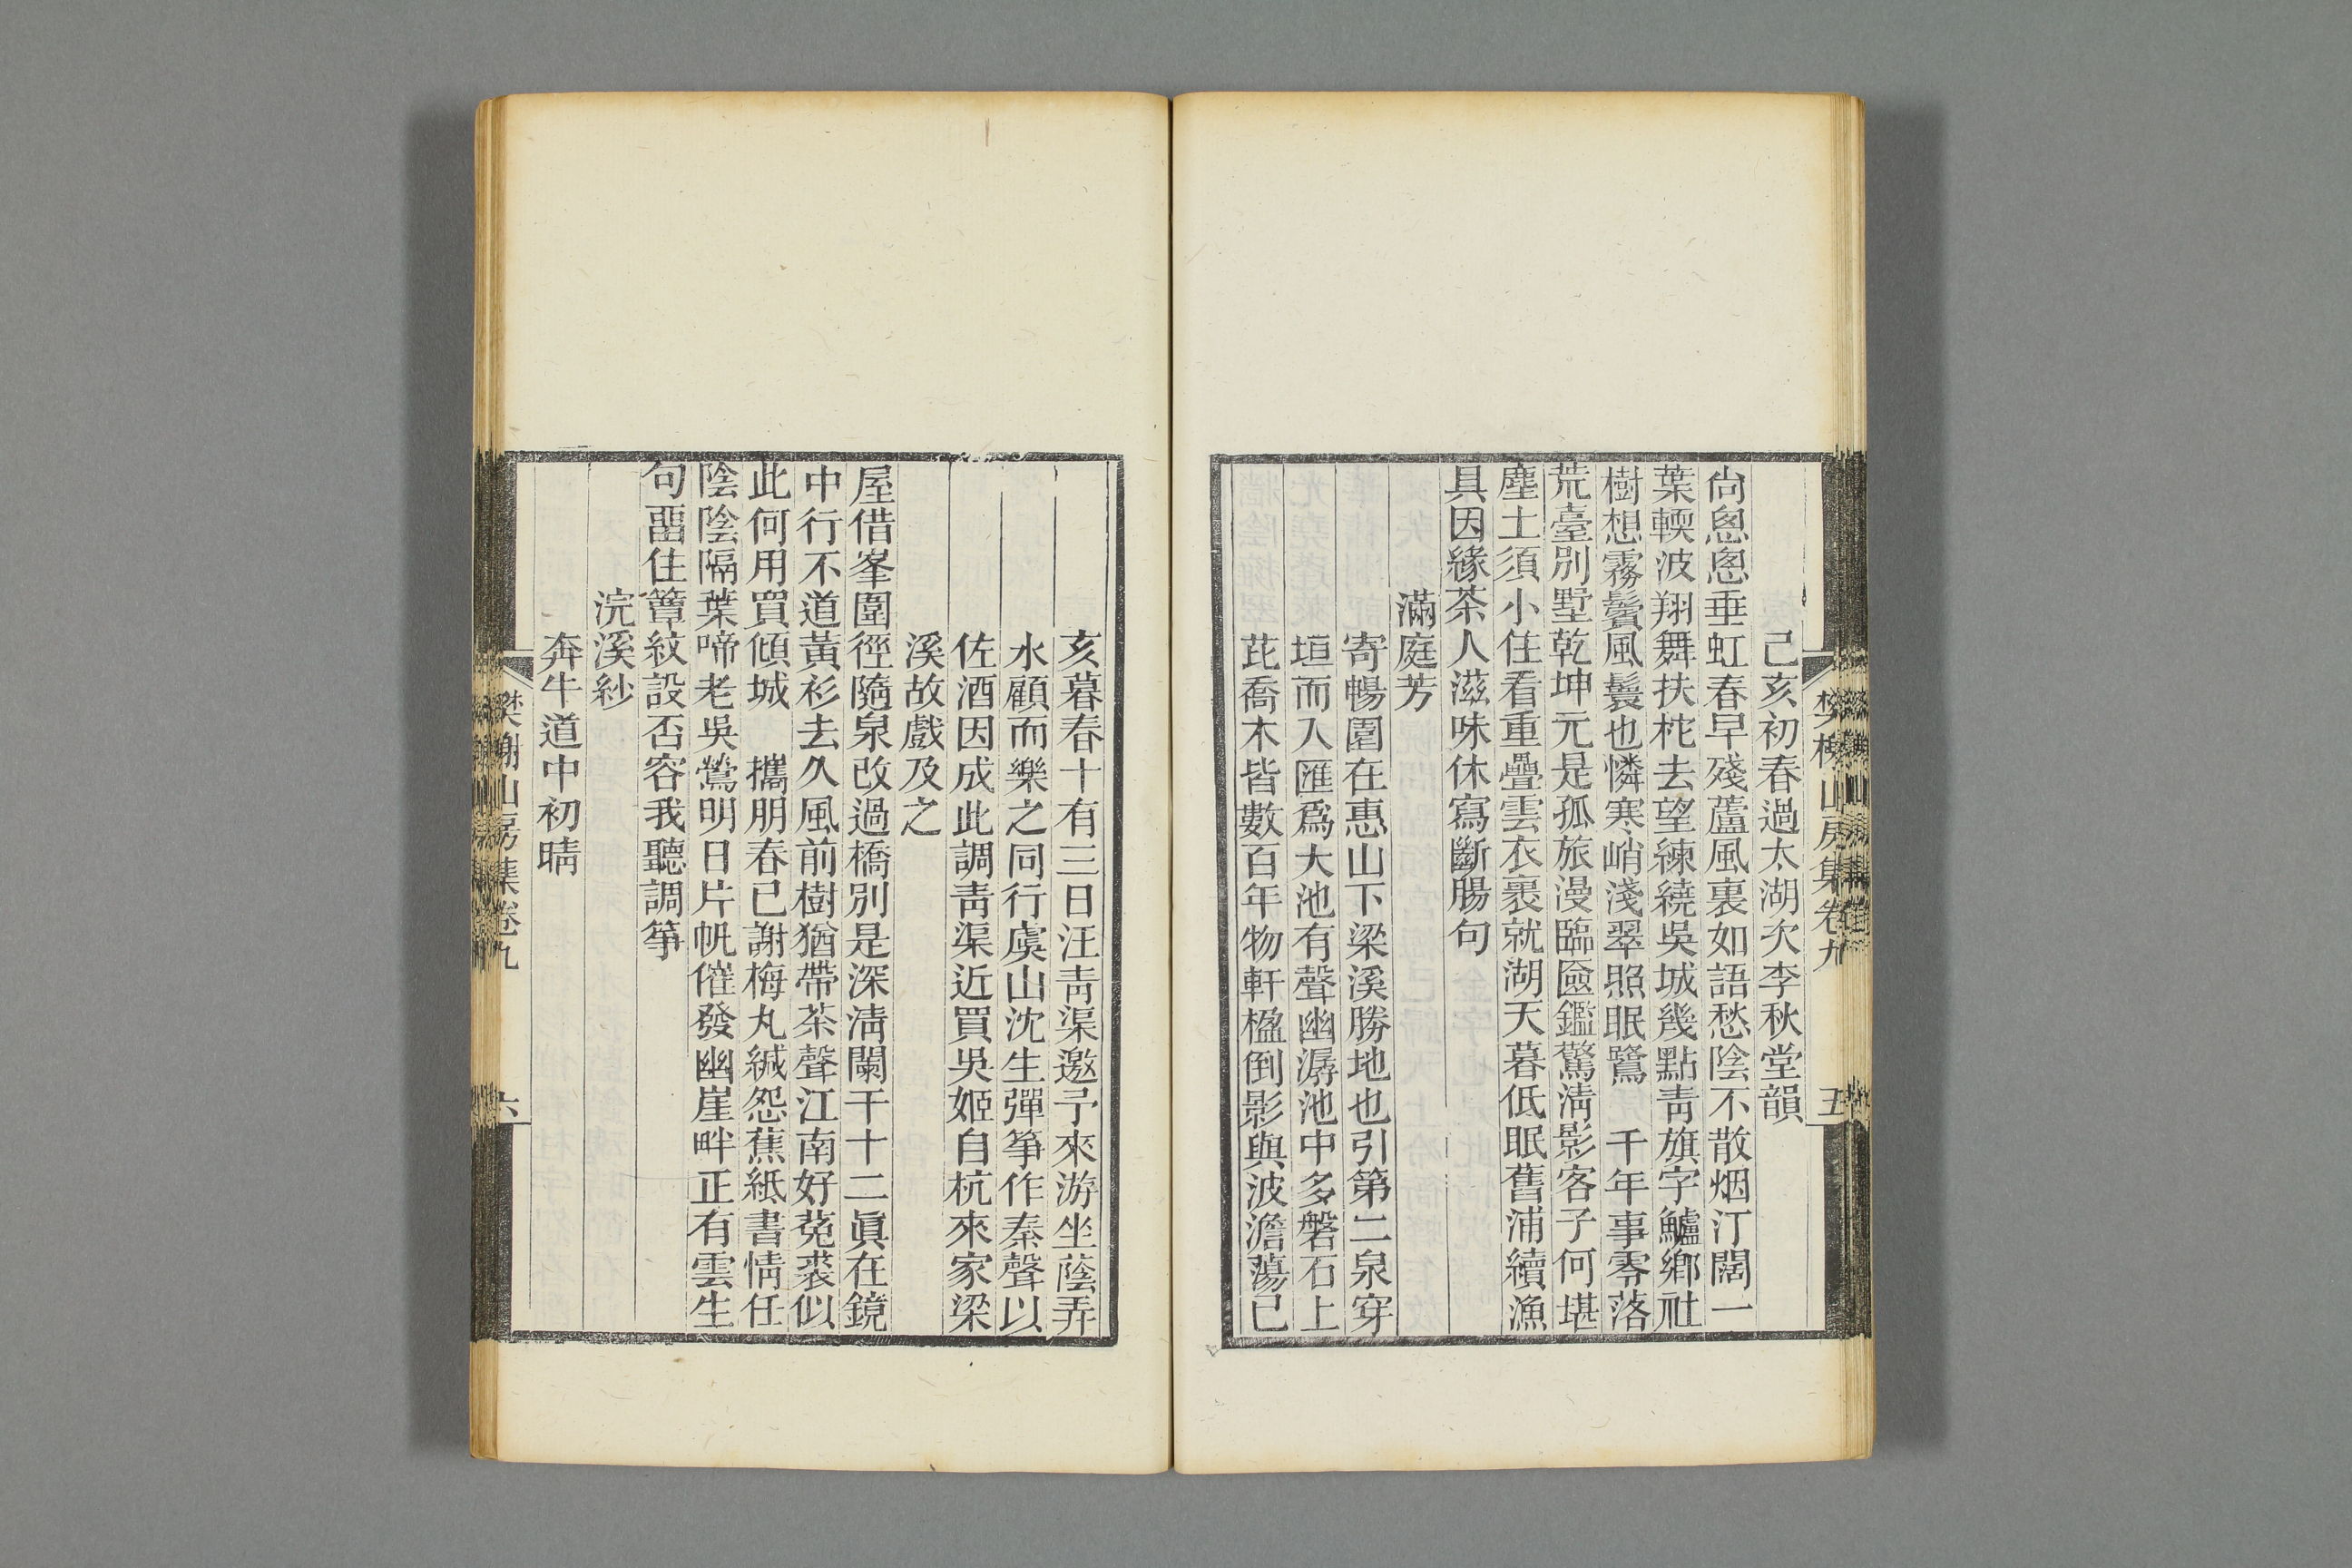 樊榭山房集卷九 五
己亥初春過太湖次李秋堂韻
尙悤悤垂虹春早殘蘆風裏如語愁陰不散烟汀闊一
葉輭波翔舞扶柁去望練繞吳城幾點靑旗字鱸鄕社
樹想霧鬢風鬟也憐寒峭淺翠照眠鷺 千年事零落
荒臺別墅乾坤元是孤旅漫臨匳鑑驚淸影客子何堪
塵土須小住看重疊雲衣裹就湖天暮低眠舊浦續漁
具因緣茶人滋味休寫斷腸句
滿庭芳
寄暢園在惠山下梁溪勝地也引第二泉穿
垣而入匯爲大池有聲幽潺池中多磐石上
芘喬木皆數百年物軒楹倒影與波澹蕩己
亥暮春十有三日汪靑渠邀予來游坐蔭弄
水顧而樂之同行虞山沈生彈筝作秦聲以
佐酒因成此調靑渠近買吳姬自杭來家梁
溪故戲及之
屋借峯圍徑隨泉改過橋別是深淸闌干十二眞在鏡
中行不道黃衫去久風前樹猶帶茶聲江南好菟裘似
此何用買傾城 攜朋春已謝梅丸緘怨蕉紙書情任
陰陰隔葉啼老吳鶯明日片帆催發幽崖畔正有雲生
句畱住簟紋設否容我聽調筝
浣溪紗
奔牛道中初晴
樊榭山房集卷九 六